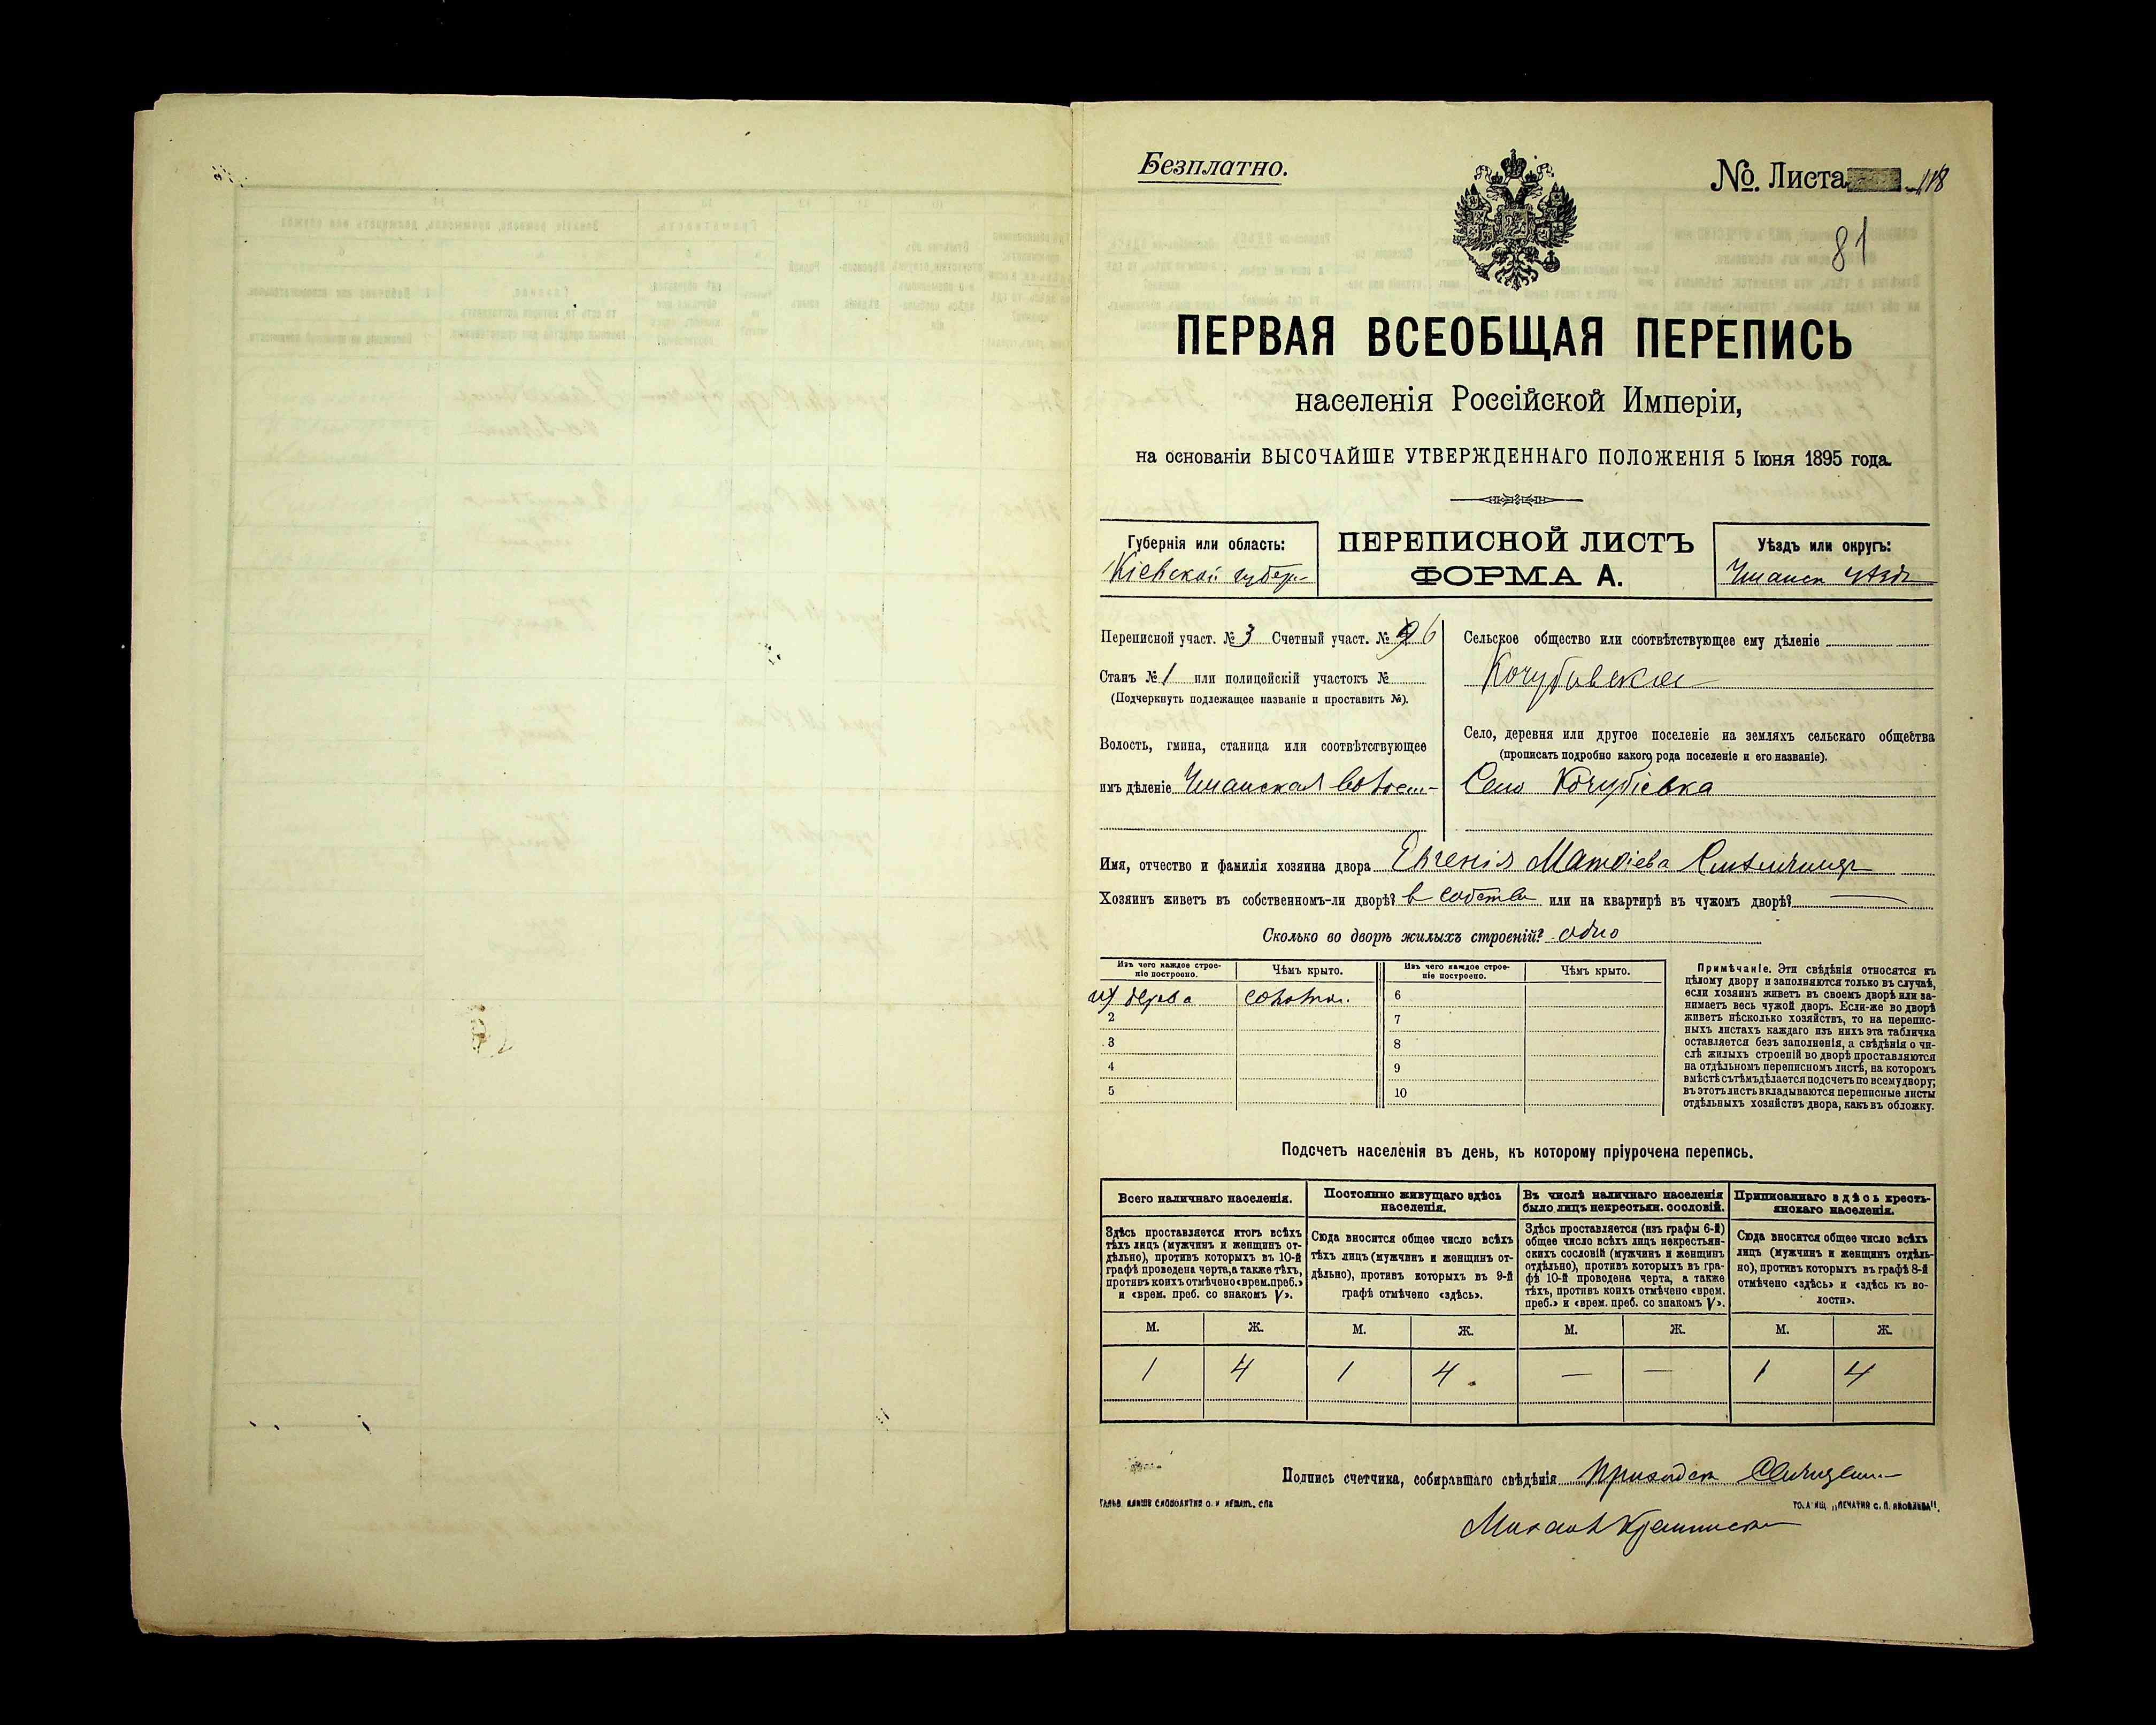 Безплатно.
№ Листа 118
81
ПЕРВАЯ ВСЕОБЩАЯ ПЕРЕПИСЬ
населенія Россійской Имперіи,
на основаніи ВЫСОЧАЙШЕ УТВЕРЖДЕННАГО ПОЛОЖЕНІЯ 5 Іюня 1895 года.
Губернія или область:
Кіевской губер
ПЕРЕПИСНОЙ ЛИСТЪ
ФОРМА А.
Уѣздъ или округъ:
Уманск уѣзд
Переписной участ. № 3 Счетный участ. № 6
Станъ № 1 или полицейскій участокъ №
(Подчеркнуть подлежащее названіе и проставить №).
Волость, гмина, станица или соотвѣтствующее
имъ дѣленіе Уманская Волост
Сельское общество или соотвѣтствующее ему дѣленіе
Кочубивское
Село, деревня или другое поселеніе на земляхъ сельскаго общества
(прописать подробно какого рода поселеніе и его названіе).
Село Кочубіевка
Имя, отчество и фамилія хозяина двора Евгенія Матвіева
Хозяинъ живетъ въ собственномъ-ли дворѣ? в собстве или на квартирѣ въ чужомъ дворѣ? —
Сколько во дворѣ жилыхъ строеній? одно
Изъ чего каждое строе-
ніе построено.
Чѣмъ крыто.
Изъ чего каждое строе-
ніе построено.
Чѣмъ крыто.
из дерева солом. 6
2 7
3 8
4 9
5 10
Примѣчаніе. Эти свѣдѣнія относятся къ
цѣлому двору и заполняются только въ случаѣ,
если хозяинъ живетъ въ своемъ дворѣ или за-
нимаетъ весь чужой дворъ. Если-же во дворѣ
живетъ нѣсколько хозяйствъ, то на перепис-
ныхъ листахъ каждаго изъ нихъ эта табличка
оставляется безъ заполненія, а свѣдѣнія о чи-
слѣ жилыхъ строеній во дворѣ проставляются
на отдѣльномъ переписномъ листѣ, на которомъ
вмѣстѣ съ тѣмъ дѣлается подсчетъ по всему двору;
въ этотъ листъ вкладываются переписные листы
отдѣльныхъ хозяйствъ двора, какъ въ обложку.
Подсчетъ населенія въ день, къ которому пріурочена перепись.
Всего наличнаго населенія.
Здѣсь проставляется итогъ всѣхъ
тѣхъ лицъ (мужчинъ и женщинъ от-
дѣльно), противъ которыхъ въ 10-й
графѣ проведена черта, а также тѣхъ,
противъ коихъ отмѣчено «врем. преб.»
и «врем. преб. со знакомъ V».
Постоянно живущаго здѣсь
населенія.
Сюда вносится общее число всѣхъ
тѣхъ лицъ (мужчинъ и женщинъ от-
дѣльно), противъ которыхъ въ 9-й
графѣ отмѣчено «здѣсь».
Въ числѣ наличнаго населенія
было лицъ некрестьян. сословій.
Здѣсь проставляется (изъ графы 6-й)
общее число всѣхъ лицъ некрестьян-
скихъ сословій (мужчинъ и женщинъ
отдѣльно), противъ которыхъ въ гра-
фѣ 10-й проведена черта, а также
тѣхъ, противъ коихъ отмѣчено «врем.
преб.» и «врем. преб. со знакомъ V».
Приписаннаго здѣсь кресть-
янскаго населенія.
Сюда вносится общее число всѣхъ
лицъ (мужчинъ и женщинъ отдѣль-
но), противъ которыхъ въ графѣ 8-й
отмѣчено «здѣсь» и «здѣсь къ во-
лости».
М. Ж. М. Ж. М. Ж. М. Ж.
1 4 1 4 — — 1 4
Подпись счетчика, собиравшаго свѣдѣнія